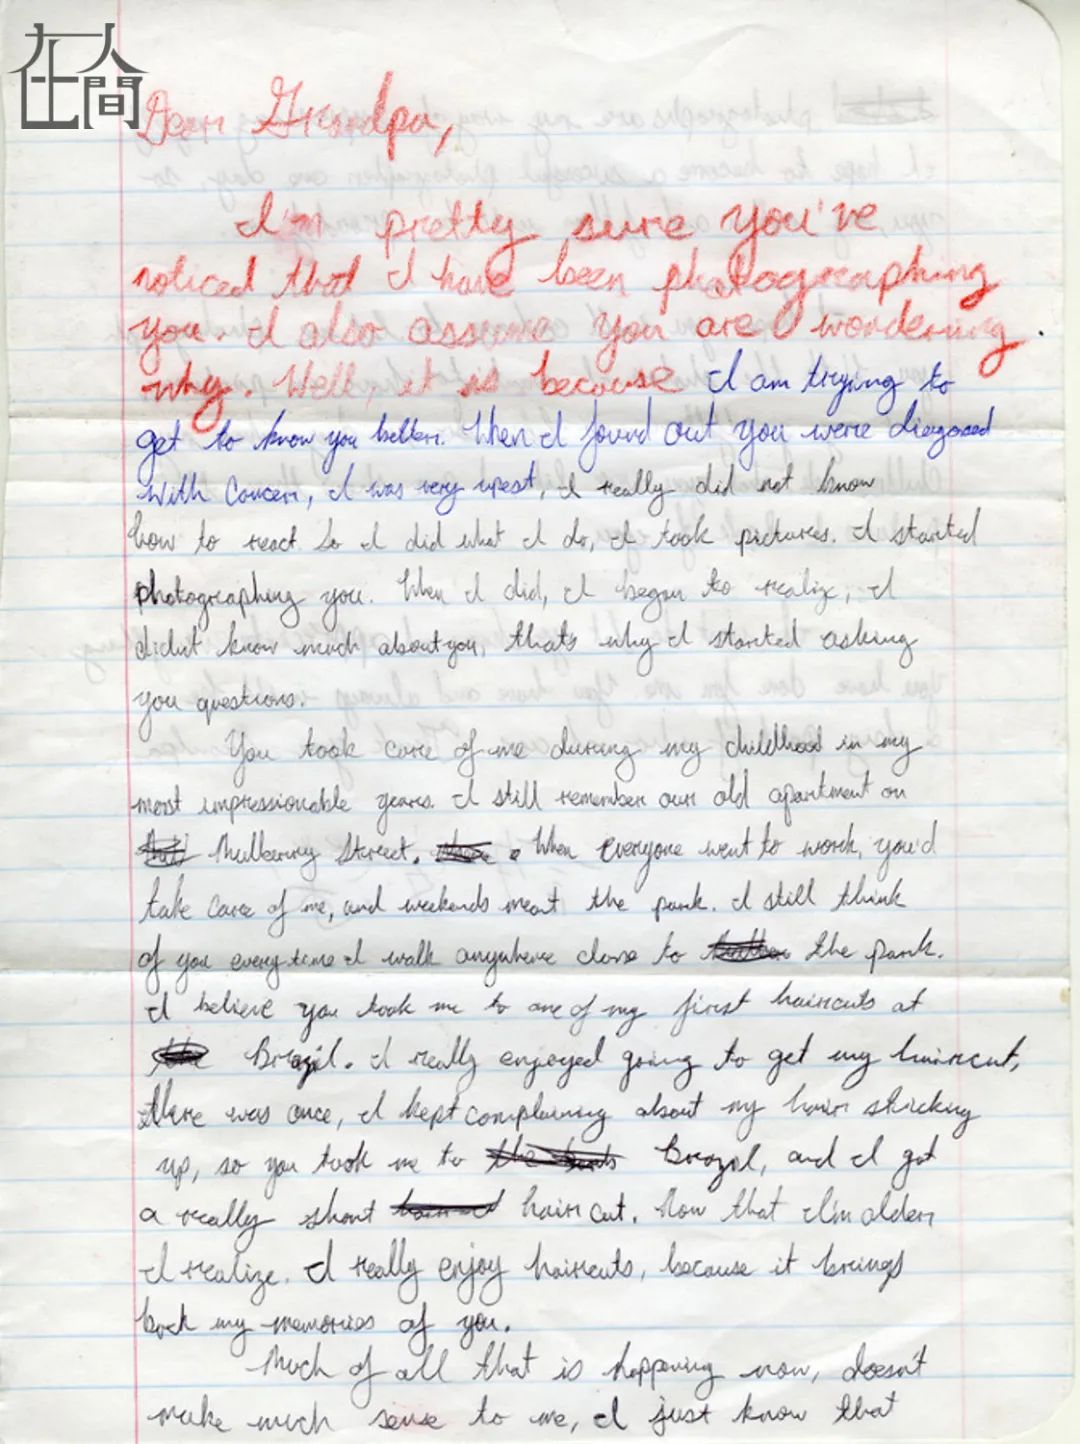 在人間
Dear Grandpa,
I'm pretty sure you've
noticed that I have been photographing
you. I also assume you are wondering
why. Well, it is because I am trying to
get to know you better. When I found out you were diegnosed
with Cancer, I was very upest, I really did not know
how to react. So I did what I do, I took pictures. I started
photographing you. When I did, I began to realize, I
didn't know much about you, that's why I started asking
you questions.
You took care of me during my childhood in my
most impressionable years. I still remember our old apartment on
Mulberry Street. When everyone went to work, you'd
take care of me, and weekends meant the park. I still think
of you everytime I walk anywhere close to the park.
I believe you took me to one of my first haircuts at
Brazil. I really enjoyed going to get my haircut,
there was once, I kept complaining about my hair sticking
up, so you took me to Brazil, and I got
a really short hair cut. Now that I'm older
I realize. I really enjoy haircuts, because it brings
back my memories of you.
Much of all that is happening now, doesn't
make much sense to me, I just know that